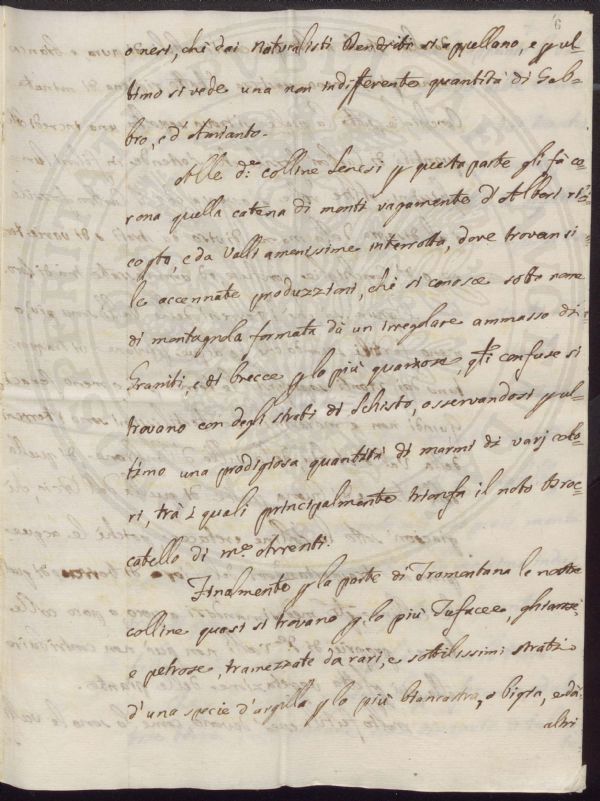 6
o neri, chi dai Naturalisti Dendriti si appellano, e p ul-
timo si vede una non indifferente quantità di Gab-
bro, e d'Amianto.
Alle d.e colline Senesi p questa parte gli fà co-
rona quella catena di monti vagamente d'Alberi ri-
copta, e da Valli amenissime interrotta, dove trovansi
le accennate produzzioni, che si conosce sotto nome
di montagnola formata da un irregolare ammasso di
Graniti, e di brecce p lo più quarzose, confuse si
trovano con degli strati di Schisto, osservandosi p ul-
timo una prodigiosa quantità di marmi di varj colo-
ri, trà i quali principalmente trionfa il noto Broc-
catello di m.e Arrenti.
Finalmente p la parte di Tramontana le nostre
colline quasi si trovano p lo più Tufacee, ghiarose
e petrose, tramezzate da rari, e sottilissimi strati
d'una specie d'argilla p lo più biancastra, o bigia, e da
altri